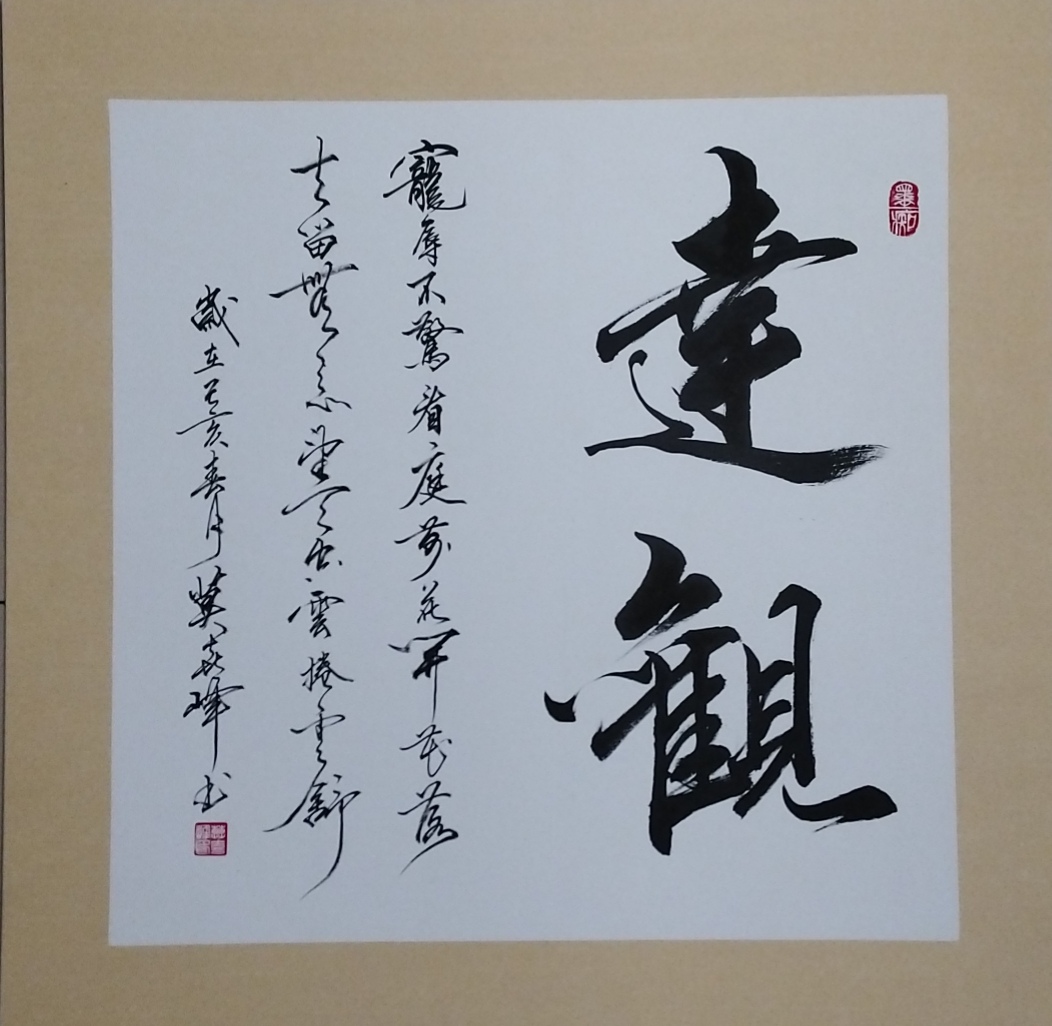 達觀
寵辱不驚看庭前花開花落
去留無意望天空雲捲雲舒
歲在己亥春月峰书